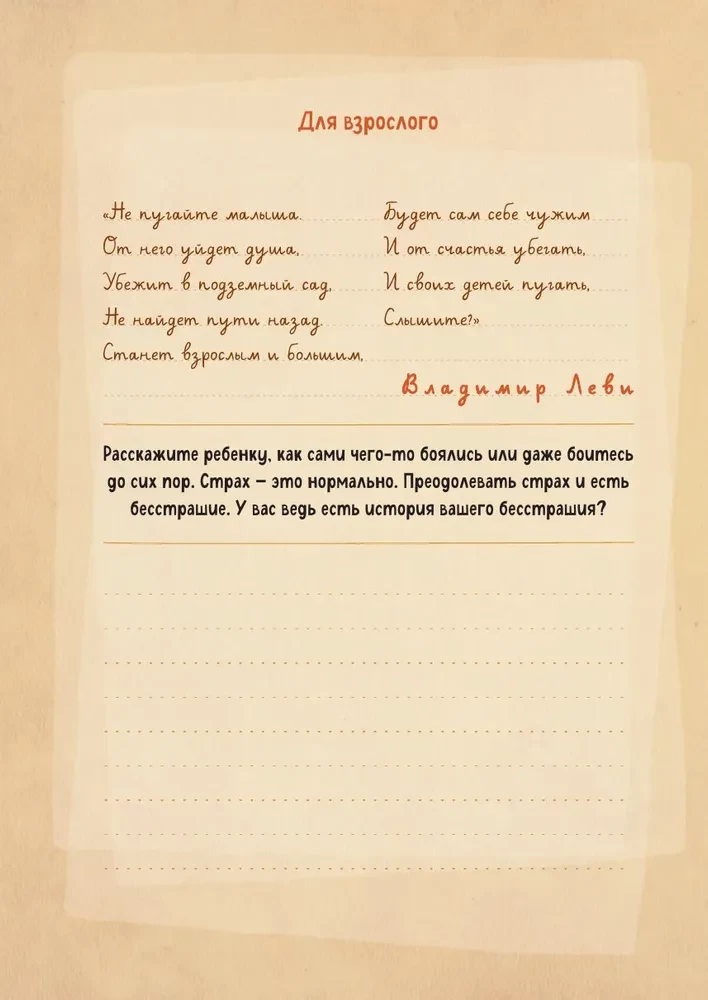 Для взрослого
«Не пугайте малыша.
От него уйдет душа,
Убежит в подземный сад,
Не найдет пути назад.
Станет взрослым и большим,
Будет сам себе чужим
И от счастья убегать,
И своих детей пугать,
Слышите?»
Владимир Леви
Расскажите ребенку, как сами чего-то боялись или даже боитесь
до сих пор. Страх – это нормально. Преодолевать страх и есть
бесстрашие. У вас ведь есть история вашего бесстрашия?